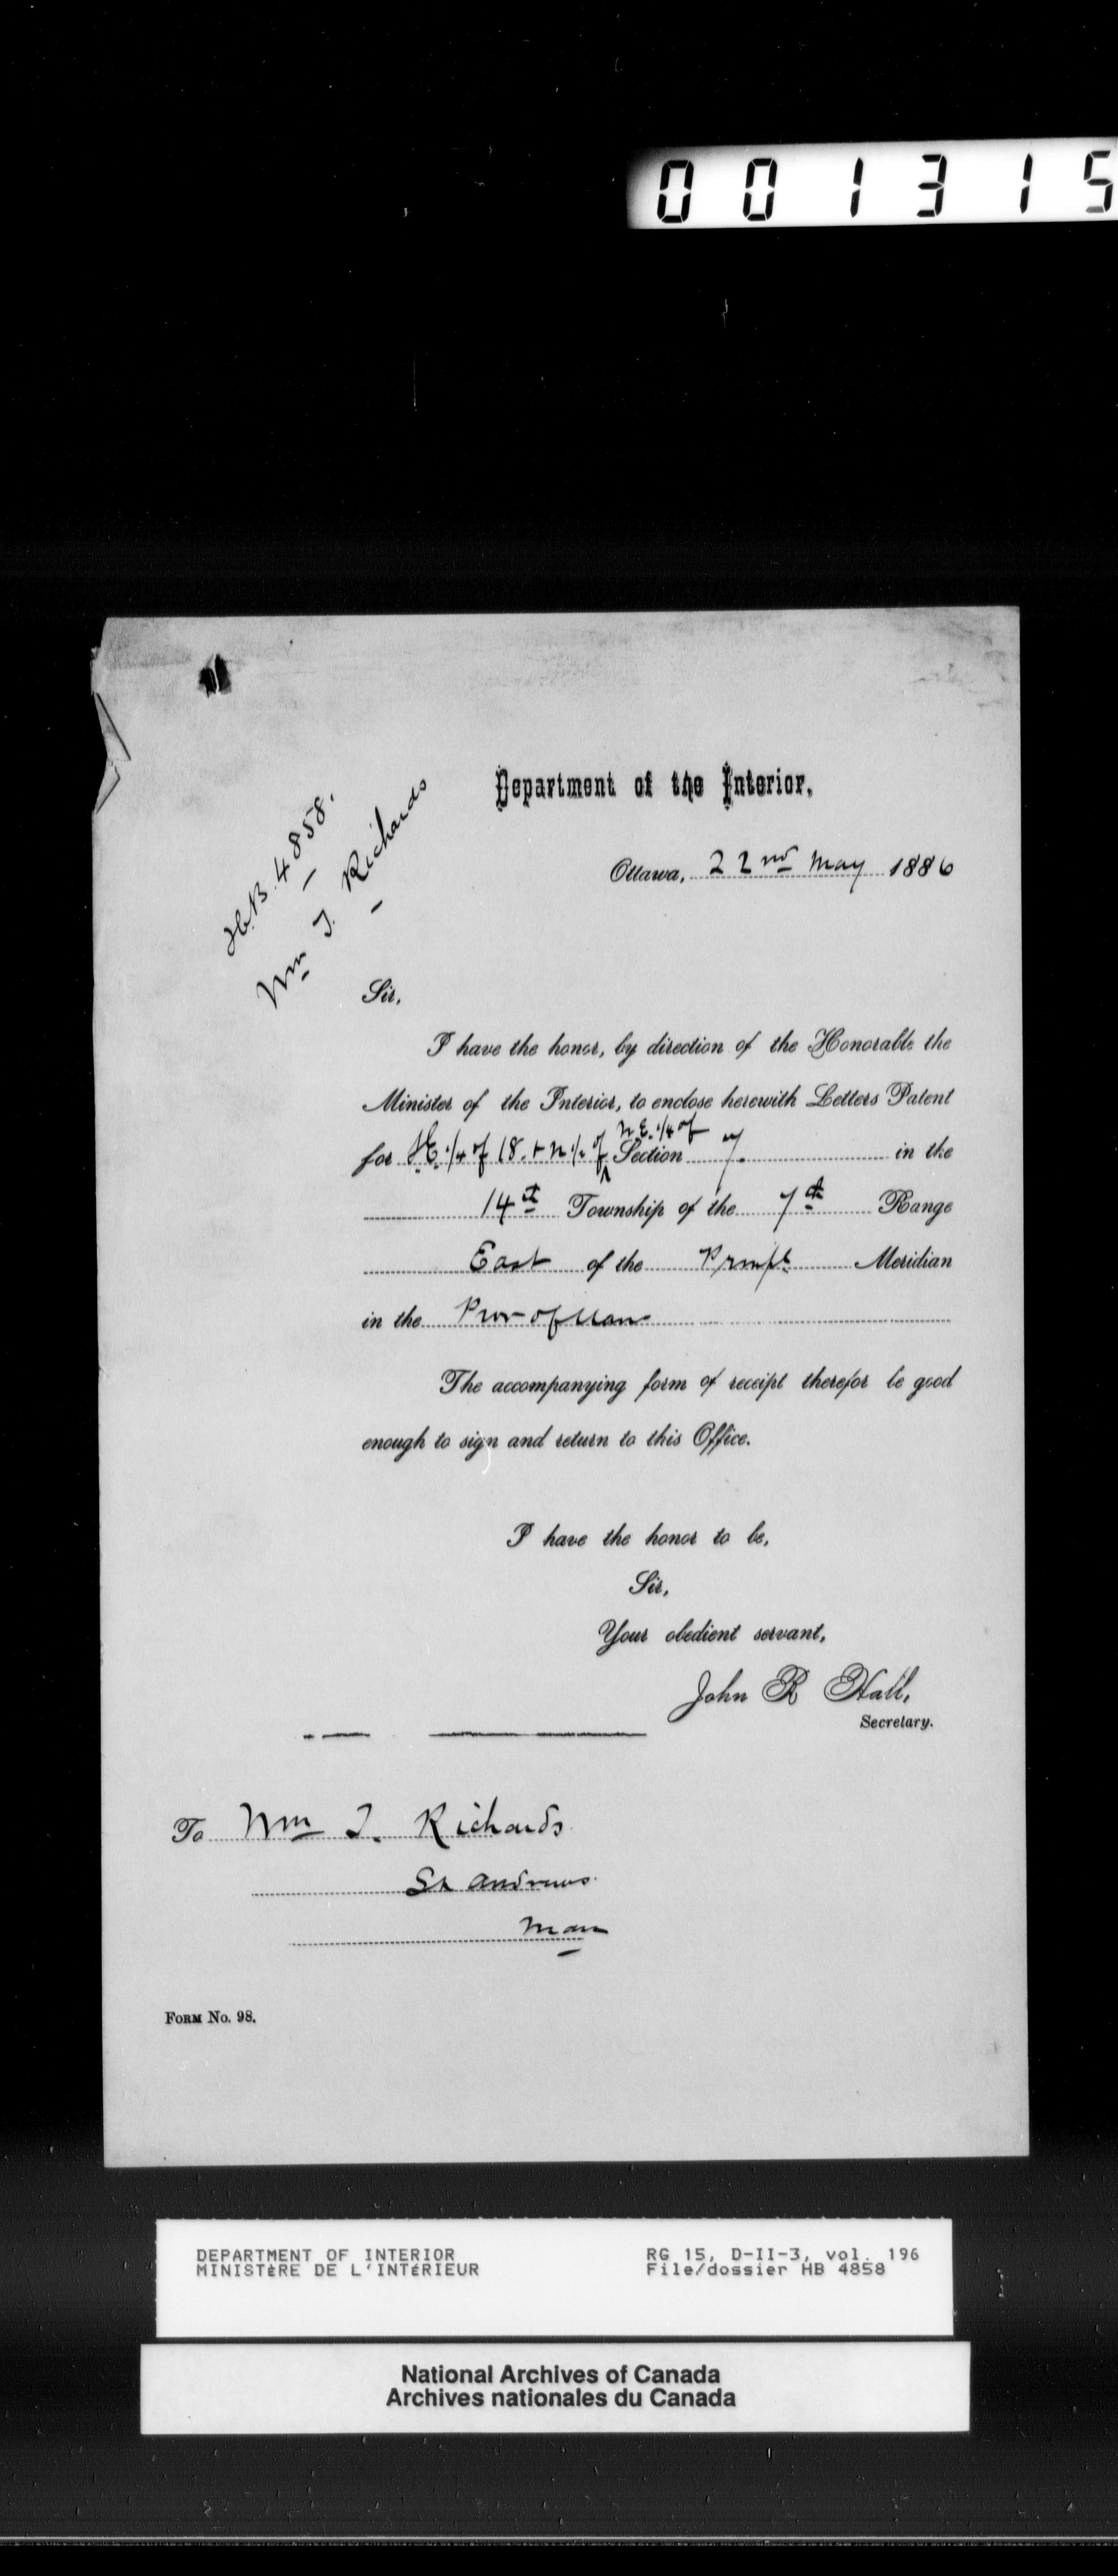 001315
H.B. 4858.
Wm J. Richards
Department of the Interior,
Ottawa, 22nd May 1886
Sir,
I have the honor, by direction of the Honorable the
Minister of the Interior, to enclose herewith Letters Patent
N.E. 1/4 of
for S.E. 1/4 of 18. + N 1/2 of Section 7. in the
14th Township of the 7th Range
East of the Meridian
in the Prov of Man
The accompanying form of receipt therefor be good
enough to sign and return to this Office.
I have the honor to be,
Sir,
Your obedient servant,
John R Hall,
Secretary.
To Wm J. Richards
St Andrews
Man
FORM No. 98.
DEPARTMENT OF INTERIOR
MINISTèRE DE L'INTéRIEUR
RG 15, D-II-3, vol. 196
File/dossier HB 4858
National Archives of Canada
Archives nationales du Canada